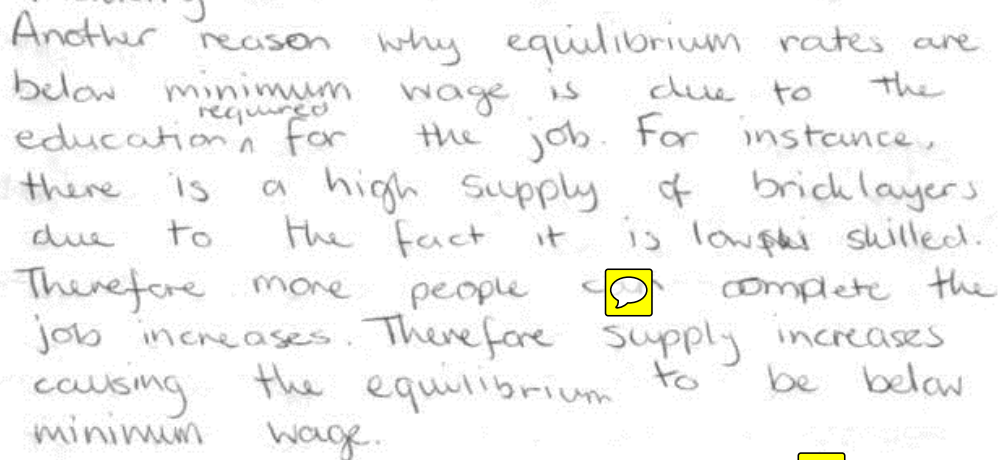 Another reason why equilibrium rates are
below minimum wage is due to the
required
education ^ for the job. For instance,
there is a high supply of bricklayers
due to the fact it is low skilled.
Therefore more people complete the
job increases. Therefore supply increases
causing the equilibrium to be below
minimum wage.